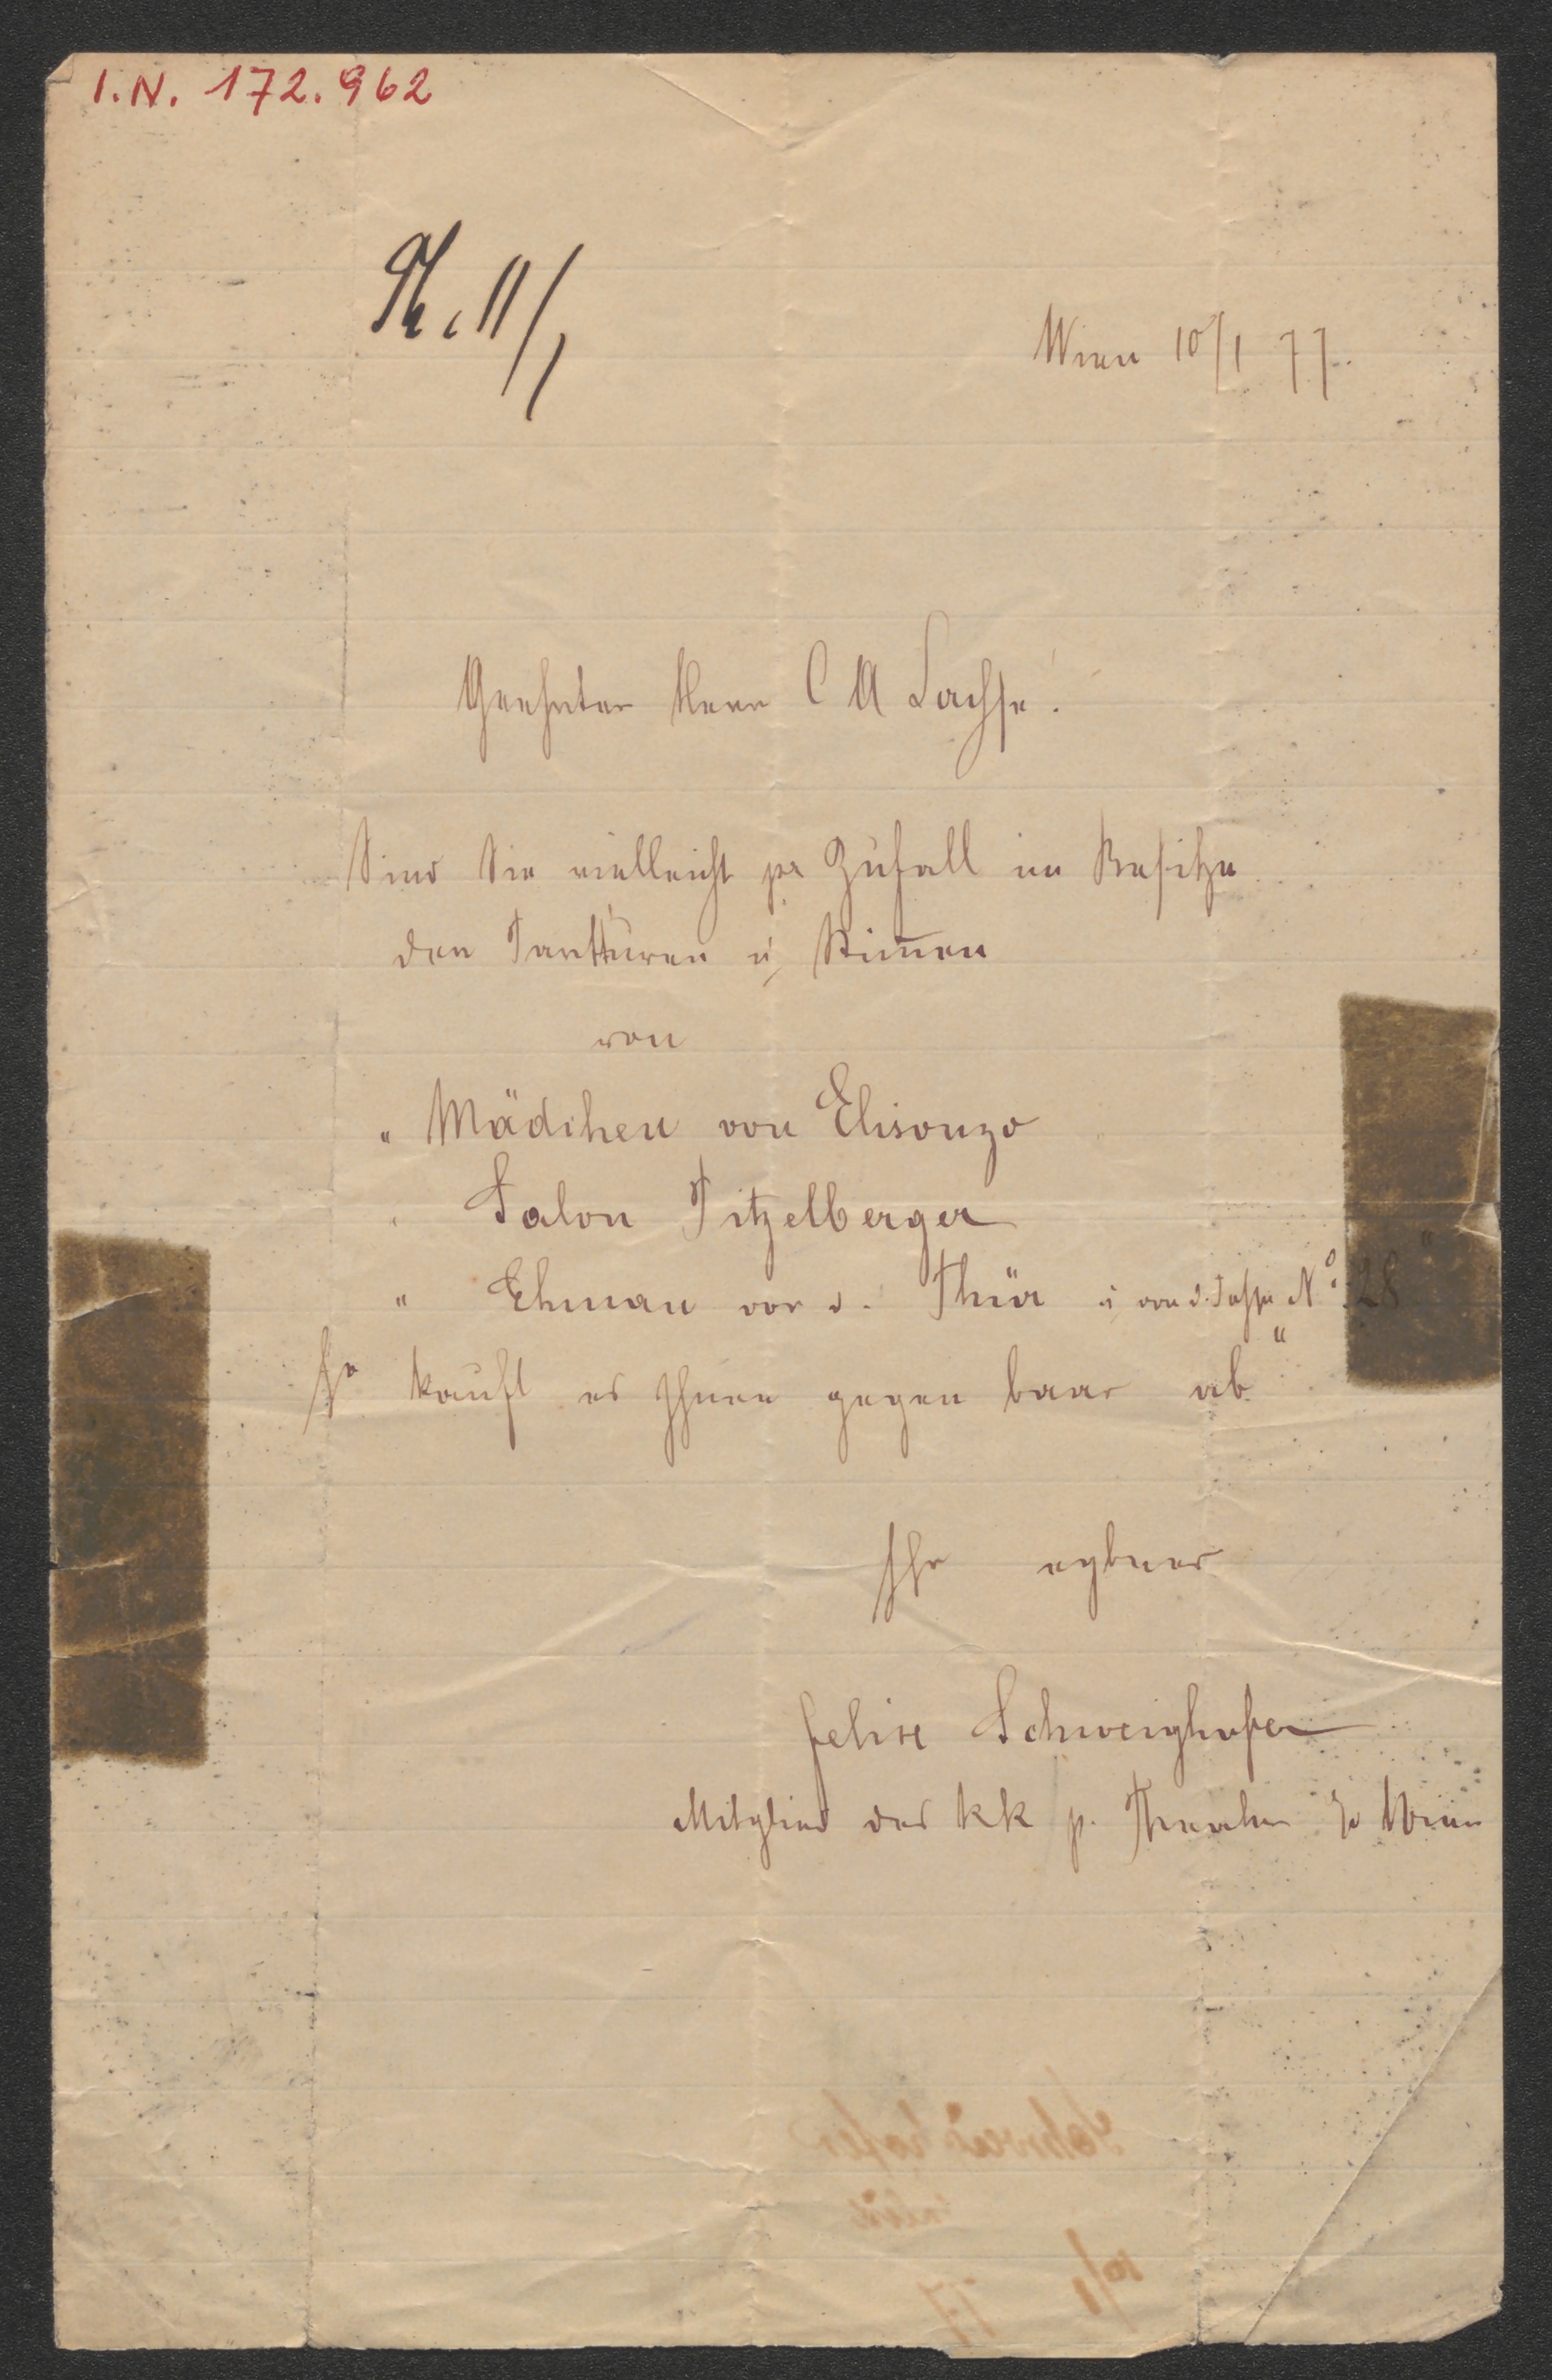 I.N. 172.962
11/1
Wien 10/1 77.
Geehrter Herr C A Sachse!
Sind Sie vielleicht pr Zufall im Besitze
den Partituren u Stim̄en
von
„ Mädchen von Elisonzo
„ Salon Pitzelberger
„ Ehman vor d. Thür u von d. Tasse No. 28"
So kauft es Ihnen gegen baar ab
Ihr ergbner
Felix Schweighofer
Mitglied des kk p. Theaters zu Wien